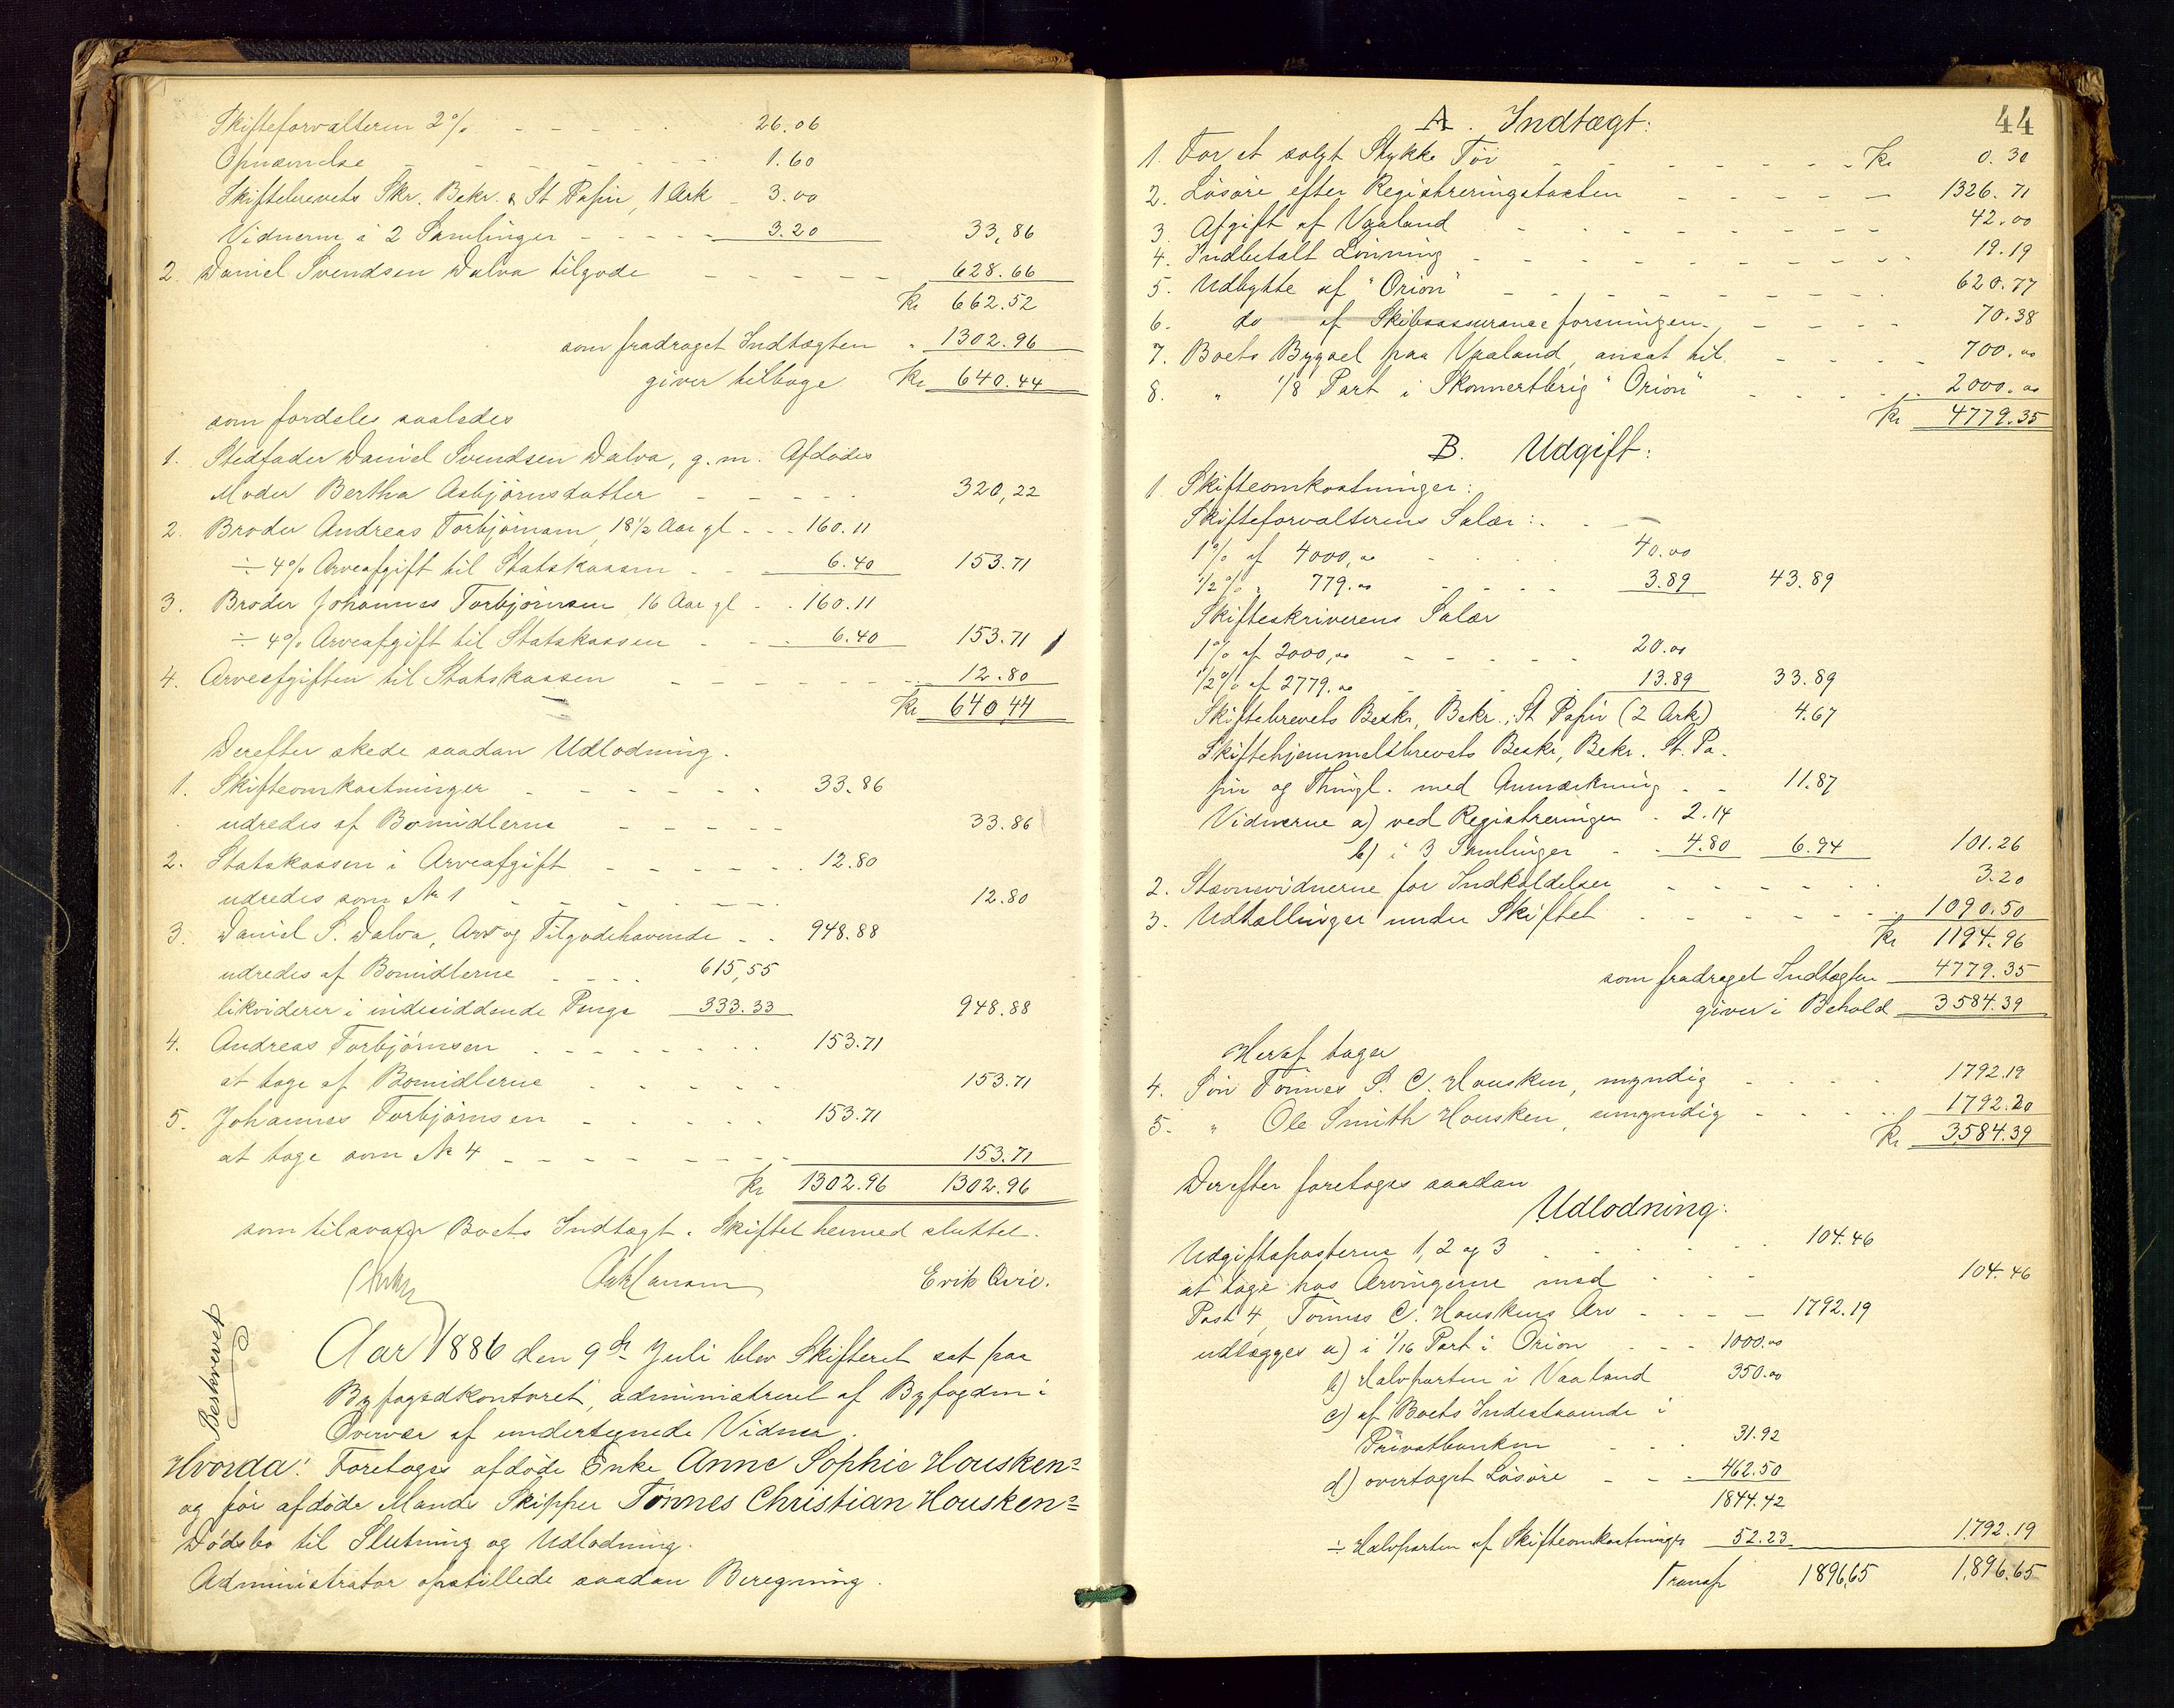 Skifteforvalteren 2% - - - - - 26.06
Opnævnelse - - - - - 1.60
Skiftebrevets Skr. Bekr. & St Papir, 1 Ark - 3.00
Vidnerne i 2 Samlinger - - - - 3.20 33,86
2. Daniel Svendsen Dalva tilgode - - - - - 628.66
Kr 662.52
som fradraget Indtægten " 1302.96
giver tilbage Kr 640.44
som fordeles saaledes
1. Stedfader Daniel Svendsen Dalva, g. m. Afdødes
Moder Bertha Asbjørnsdatter - - - - 320,22
2. Broder Andreas Torbjørnsen, 18½ Aar gl - - - 160.11
÷ 4% Arveafgift til Statskassen - - - 6.40 153.71
3. Broder Johannes Torbjørnsen 16 Aar gl - - 160.11
÷ 4% Arveafgift til Statskassen - - - 6.40 153.71
4. Arveafgiften til Statskassen - - - - - - - 12.80
Kr 640.44
Derefter skede saadan Udlodning.
1. Skifteomkostninger - - - - - - 33.86
udredes af Bomidlerne - - - - - 33.86
2. Statskassen i Arveafgift - - - - - - 12.80
udredes som № 1 - - - - - - 12.80
3. Daniel S. Dalva, Arv og Tilgodehavende - - 948.88
udredes af Bomidlerne - - - - 615,55
likviderer i indesiddende Penge 333.33 948.88
4. Andreas Torbjørnsen - - - - - - - 153.71
at tage af Bomidlerne - - - - - 153.71
5. Johannes Torbjørnsen - - - - - 153.71
at tage som № 4 - - - - - - - - 153.71
Kr 1302.96 1302.96
som tilsvarer Boets Indtægt. Skiftet hermed sluttet.
Erik Qvie.
Beskrevet
Aar 1886 den 9de Juli blev Skifteret sat paa
Byfogedkontoret, administreret af Byfogden i
Overvær af undertegnede Vidner.
Hvorda: Foretoges afdøde Enke Anne Sophie Housken=
og før afdøde Mands Skipper Tønnes Christian Housken=
Dødsbo til Slutning og Udlodning.
Administrator opstillede saadan Beregning.
44
A. Indtægt:
1. For et solgt Stykke Tøi - - - - - - - - Kr 0.30
2. Løsøre efter Registreringstaxten - - - - - 1326.71
3. Afgift af Vaaland - - - - - - - - - 42.00
4. Indbetalt Lønning - - - - - - - - - 19.19
5. Udbytte af "Orion" - - - - - - - - - 620.77
6. do af Skibsassuranceforeningen - - - - - 70.38
7. Boets Bygsel paa Vaaland, ansat til - - - - 700.00
8. " 1/8 Part i Skonnertbrig "Orion" - - - - 2000.00
Kr 4779.35
B. Udgift:
1. Skifteomkostninger:
Skifteforvalterens Salær:
1% af 4000,00 - - - - 40.00
1/2% " 779.00 - - - - 3.89 43.89
Skifteskriverens Salær
1% af 2000,00 - - - - - 20.00
1/2% af 2779.00 - - - - - 13.89 33.89
Skiftebrevets Beskr, Bekr., St Papir (2 Ark) 4.67
Skiftehjemmelsbrevets Beskr, Bekr. St. Pa-
pir og Thingl. med Anmærkning - - 11.87
Vidnerne a) ved Registreringen - 2.14
b) i 3 Samlinger - - 4.80 6.94 101.26
2. Stævnevidnerne for Indkaldelser - - - - - 3.20
3. Udtællinger under Skiftet - - - - - - 1090.50
Kr 1194.96
som fradraget Indtægten 4779.35
giver i Behold 3584.39
Heraf tager
4. Søn Tønnes S. C. Housken, myndig - - - - 1792.19
5. " Ole Smith Housken, umyndig - - - - 1792.20
Kr 3584.39
Derefter foretoges saadan
Udlodning:
Udgiftsposterne 1, 2 og 3 - - - - - - 104.46
at tage hos Arvingerne med - - - 104.46
Post 4, Tønnes C. Houskens Arv - - - - 1792.19
udlægges a) i 1/16 Part i Orion - - - 1000.00
b) Halvparten i Vaaland 350.00
c) af Boets Indestaaende i
Privatbanken - - - 31.92
d) overtaget Løsøre - - - 462.50
1844.42
÷ Halvparten af Skifteomkostninger 52.23 1792.19
Transp 1896,65 1,896.65